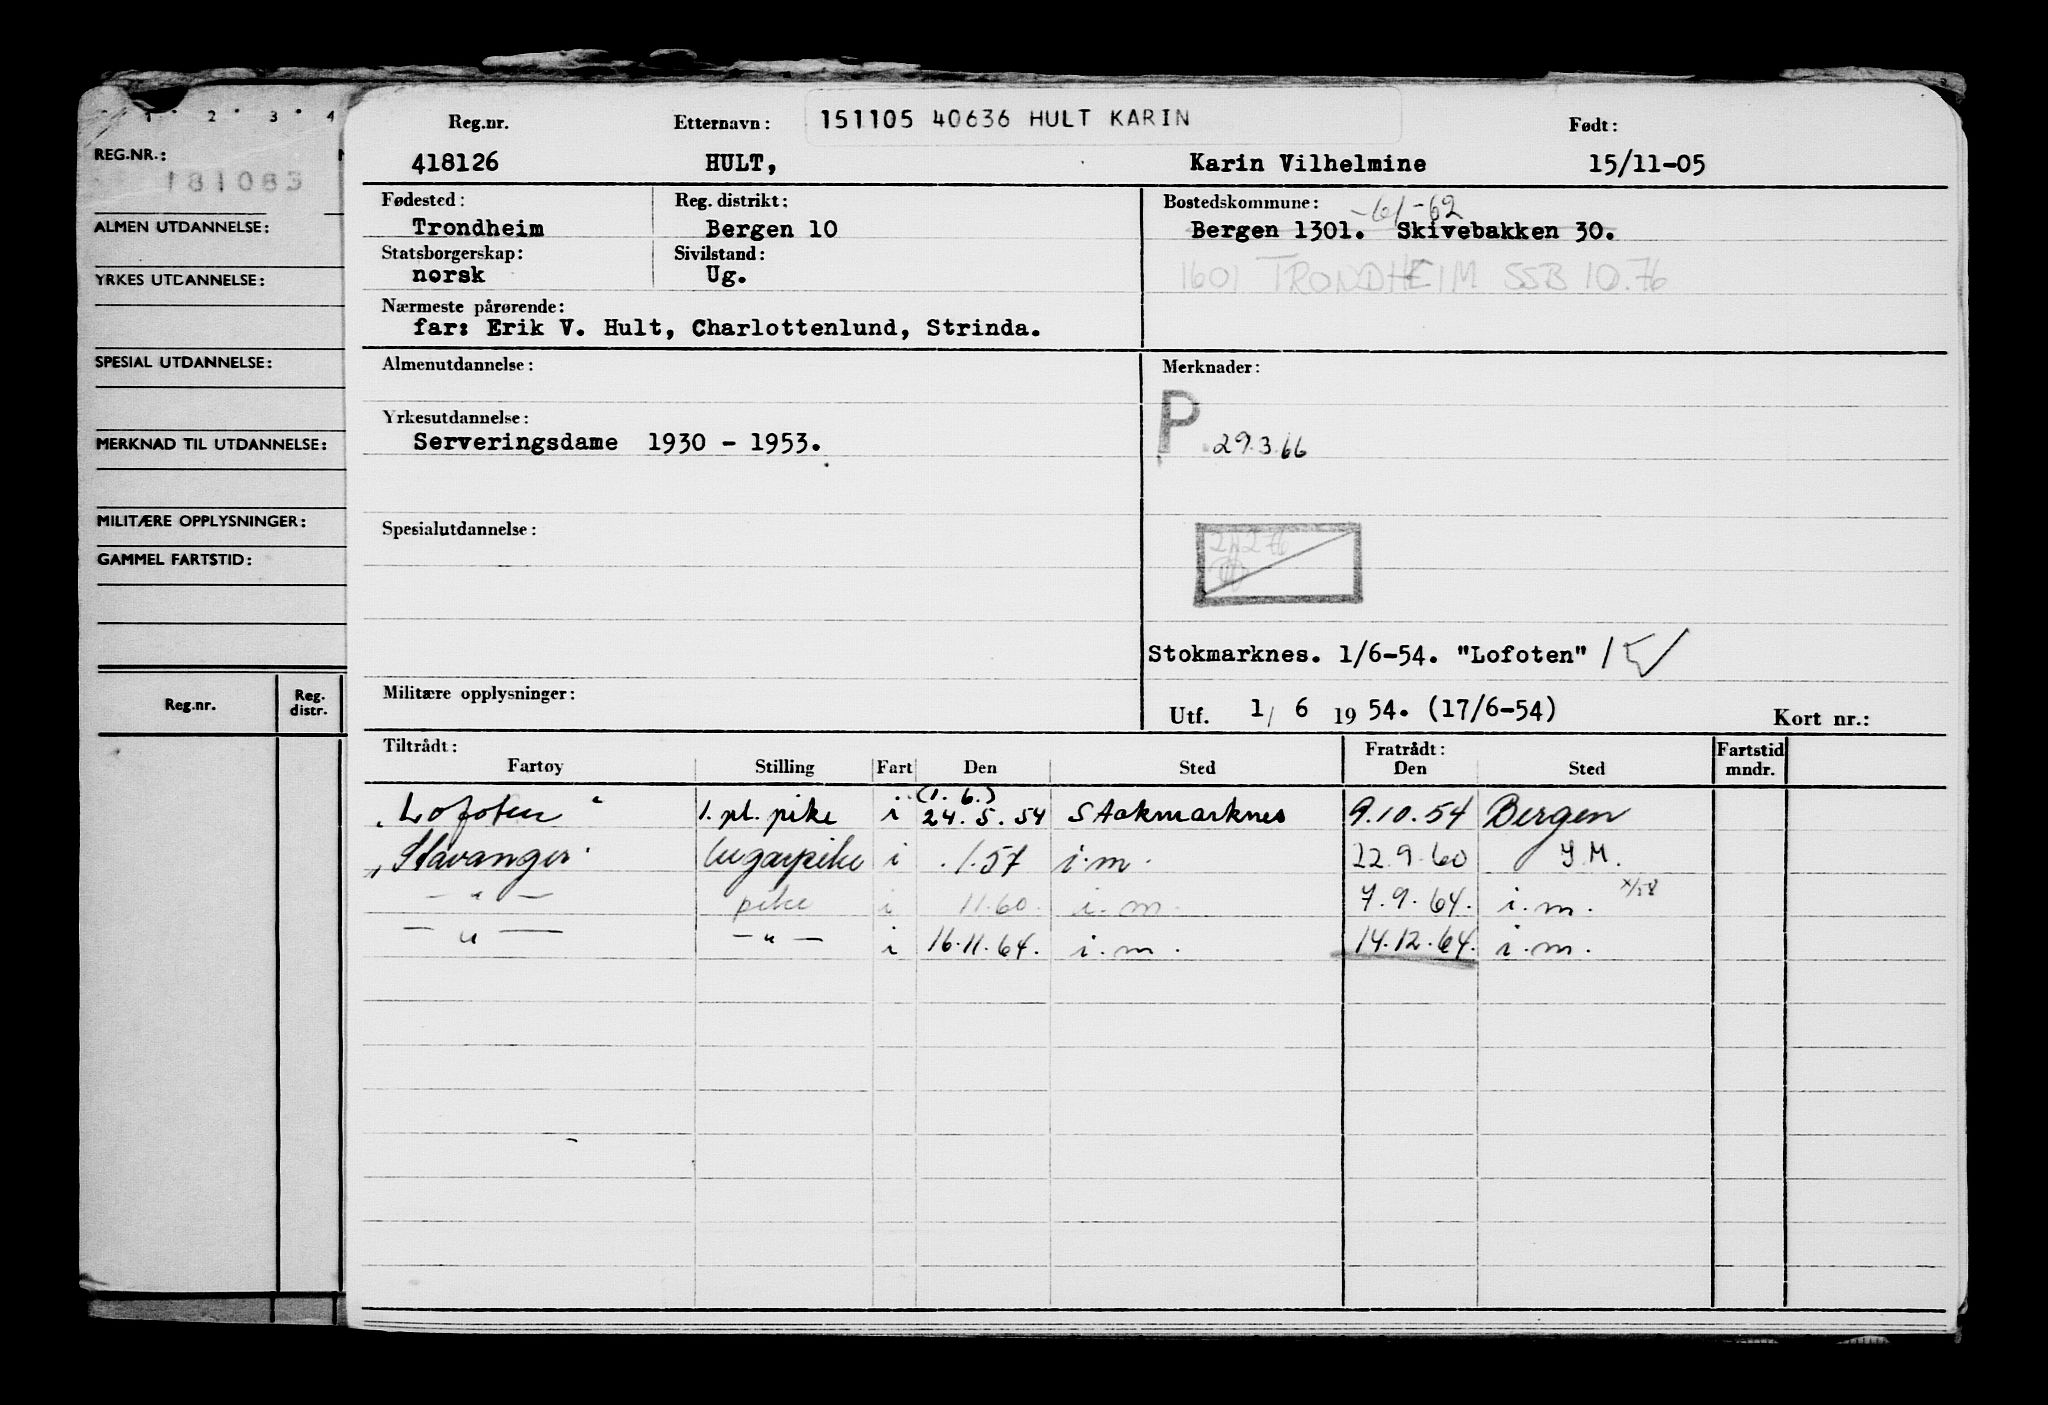 1 2 3 4
REG.NR.:
181083
ALMEN UTDANNELSE:
YRKES UTDANNELSE:
SPESIAL UTDANNELSE:
MERKNAD TIL UTDANNELSE:
MILITÆRE OPPLYSNINGER:
GAMMEL FARTSTID:
Reg.nr. Reg. distr.
Reg.nr. Etternavn: 151105 40636 HULT KARIN Født:
418126 HULT, Karin Vilhelmine 15/11-05
Fødested: Reg. distrikt: Bostedskommune: -61-62
Trondheim Bergen 10 Bergen 1301. Skivebakken 30.
Statsborgerskap: Sivilstand:
norsk Ug. 1601 TRONDHEIM SSB 10.76
Nærmeste pårørende:
far: Erik V. Hult, Charlottenlund, Strinda.
Almenutdannelse: Merknader:
Yrkesutdannelse: P.
Serveringsdame 1930 - 1953. 29.3.66
Spesialutdannelse:
Stokmarknes. 1/6-54. "Lofoten"
Militære opplysninger:
Utf. 1/ 6 19 54. (17/6-54) Kort nr.:
Tiltrådt: Fratrådt: Fartstid
Fartøy Stilling Fart Den Sted Den Sted mndr.
(1. 6.)
"Lofoten" 1. pl. pike i 24.5.54 Stokmarknes 9.10.54 Bergen
"Stavanger" lugarpike i .1.57 i.m. 22.9.60 I.M.
— " — pike i 11.60. i.m. 7.9.64. i.m.
— " — — " — i 16.11.64. i.m. 14.12.64. i.m.